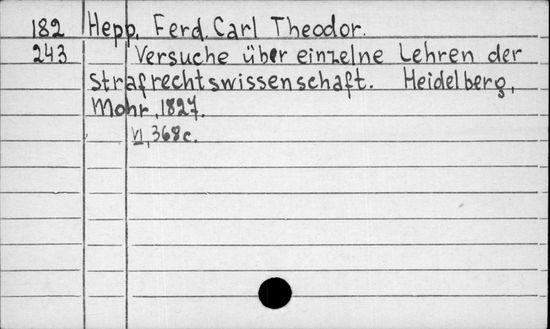 182 Hepp, Ferd. Carl Theodor.
243 Versuche über einzelne Lehren der
Strafrechtswissenschaft. Heidelberg,
Mohr, 1827.
VI, 368 c.